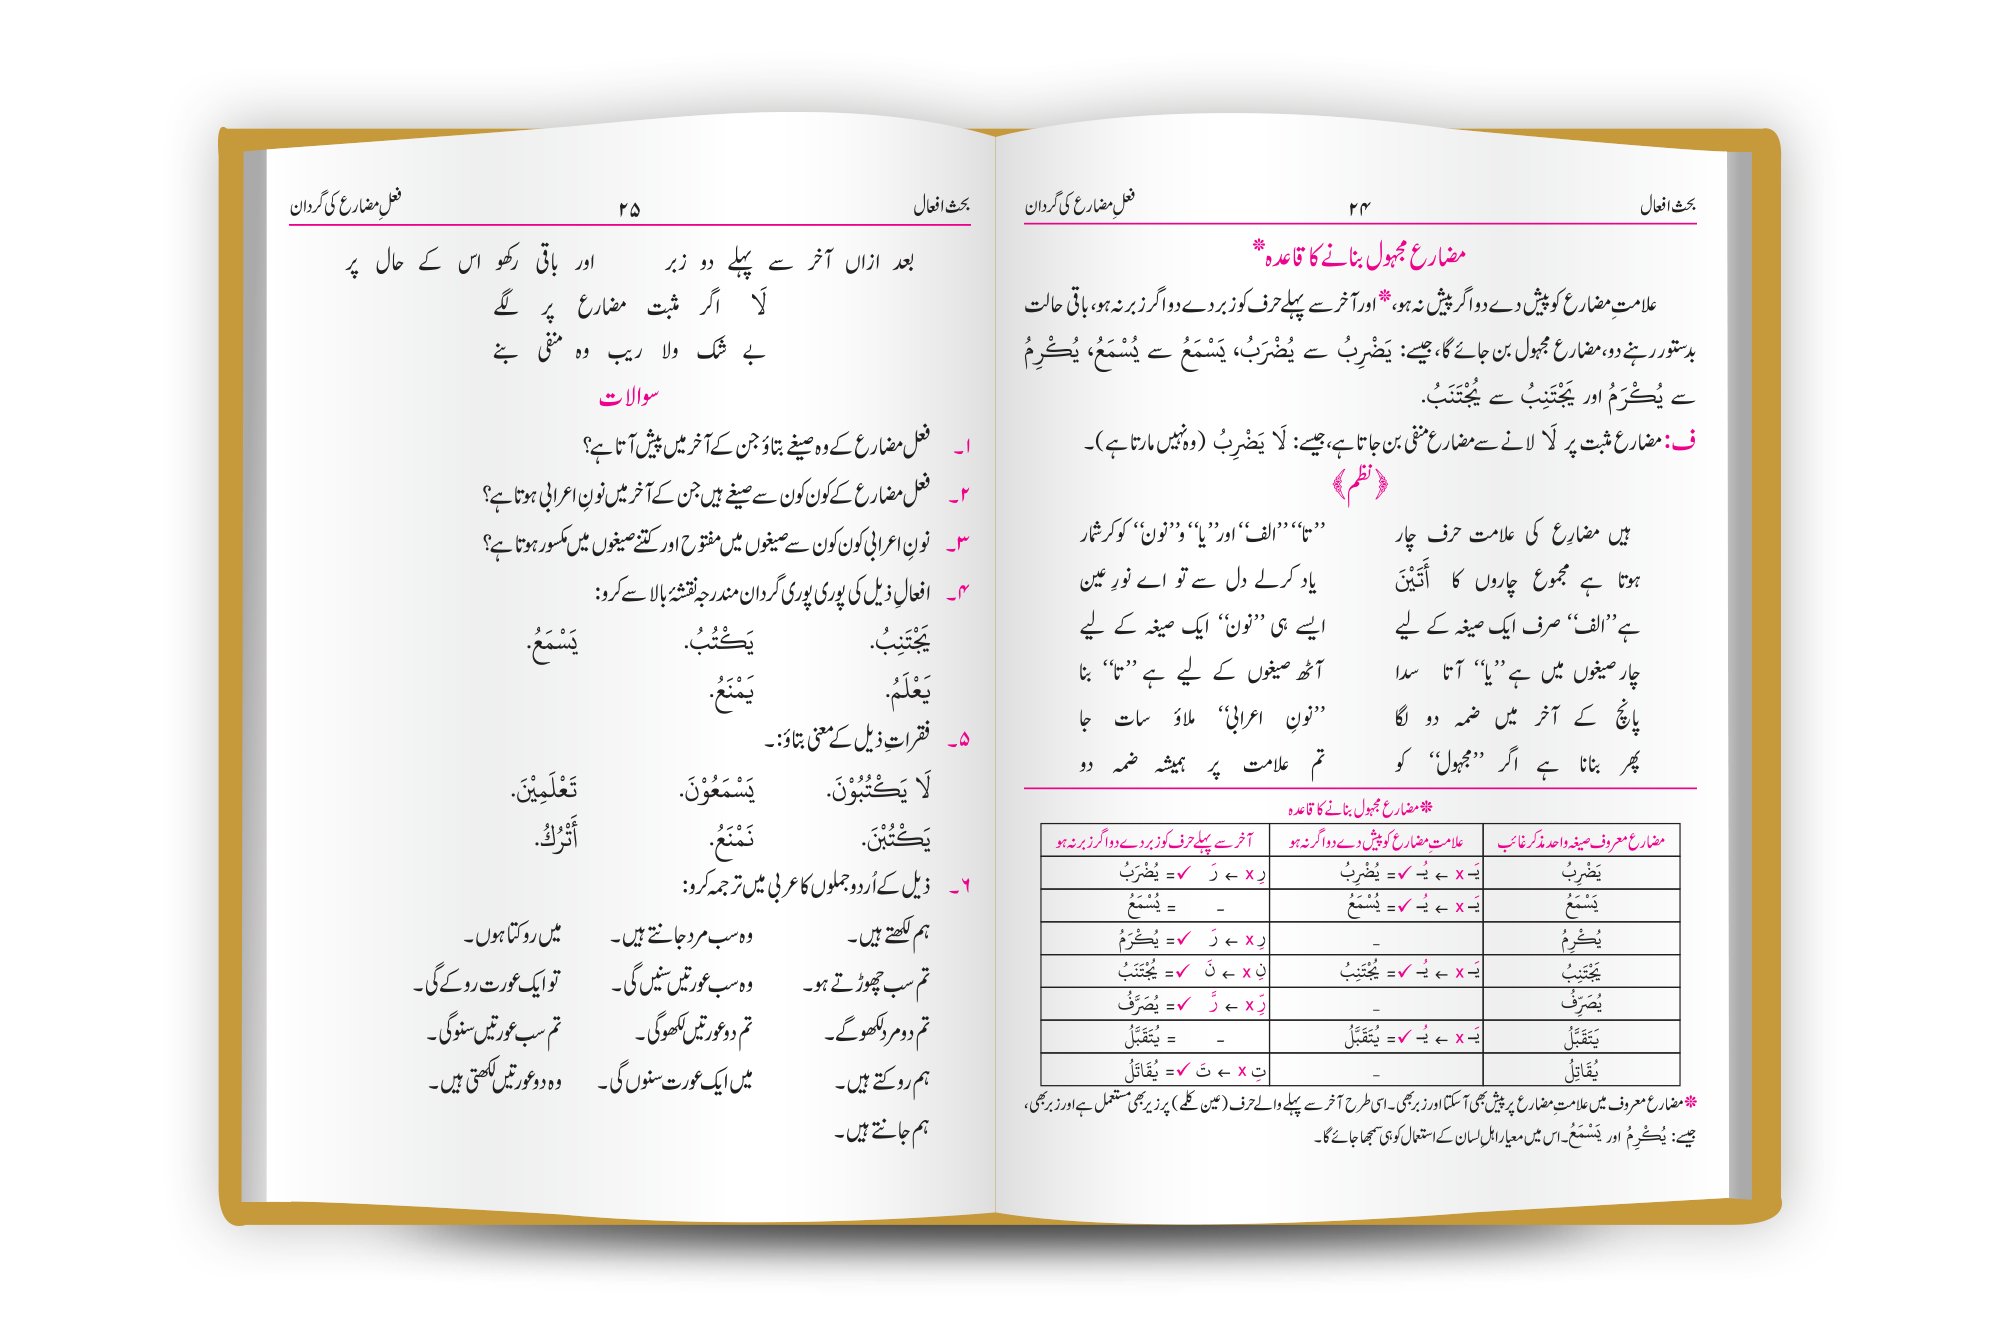 بحث افعال ۲۴ فعلِ مضارع کی گردان
مضارع مجہول بنانے کا قاعدہ*
علامتِ مضارع کو پیش دے دو اگر پیش نہ ہو،* اور آخر سے پہلے حرف کو زبر دے دو اگر زبر نہ ہو، باقی حالت
بدستور رہنے دو، مضارع مجہول بن جائے گا، جیسے: يَضْرِبُ سے يُضْرَبُ، يَسْمَعُ سے يُسْمَعُ، يُكْرِمُ
سے يُكْرَمُ اور يَجْتَنِبُ سے يُجْتَنَبُ.
ف: مضارع مثبت پر لَا لانے سے مضارع منفی بن جاتا ہے، جیسے: لَا يَضْرِبُ (وہ نہیں مارتا ہے)۔
﴿نظم﴾
ہیں مضارِع کی علامت حرف چار ’’تا‘‘ ’’الف‘‘ اور ’’یا‘‘ و ’’نون‘‘ کو کر شمار
ہوتا ہے مجموع چاروں کا أَتَيْنَ یاد کرلے دل سے تو اے نورِ عین
ہے ’’الف‘‘ صرف ایک صیغہ کے لیے ایسے ہی ’’نون‘‘ ایک صیغہ کے لیے
چار صیغوں میں ہے ’’یا‘‘ آتا سدا آٹھ صیغوں کے لیے ہے ’’تا‘‘ بنا
پانچ کے آخر میں ضمہ دو لگا ’’نونِ اعرابی‘‘ ملاؤ سات جا
پھر بنانا ہے اگر ’’مجہول‘‘ کو تم علامت پر ہمیشہ ضمہ دو
* مضارع مجہول بنانے کا قاعدہ
مضارع معروف صیغہ واحد مذکر غائب علامتِ مضارع کو پیش دے دو اگر نہ ہو آخر سے پہلے حرف کو زبر دے دو اگر زبر نہ ہو
يَضْرِبُ يَـ x ← يُـ ✓ = يُضْرِبُ رِ x ← رَ ✓ = يُضْرَبُ
يَسْمَعُ يَـ x ← يُـ ✓ = يُسْمَعُ - = يُسْمَعُ
يُكْرِمُ - رِ x ← رَ ✓ = يُكْرَمُ
يَجْتَنِبُ يَـ x ← يُـ ✓ = يُجْتَنِبُ نِ x ← نَ ✓ = يُجْتَنَبُ
يُصَرِّفُ - رِّ x ← رَّ ✓ = يُصَرَّفُ
يَتَقَبَّلُ يَـ x ← يُـ ✓ = يُتَقَبَّلُ - = يُتَقَبَّلُ
يُقَاتِلُ - تِ x ← تَ ✓ = يُقَاتَلُ
* مضارع معروف میں علامتِ مضارع پر پیش بھی آسکتا اور زبر بھی۔ اسی طرح آخر سے پہلے والے حرف (عین کلمے) پر زیر بھی مستعمل ہے اور زبر بھی،
جیسے: يُكْرِمُ اور يَسْمَعُ۔ اس میں معیار اہلِ لسان کے استعمال کو ہی سمجھا جائے گا۔
بحث افعال ۲۵ فعلِ مضارع کی گردان
بعد ازاں آخر سے پہلے دو زبر اور باقی رکھو اس کے حال پر
لَا اگر مثبت مضارع پر لگے
بے شک ولا ریب وہ منفی بنے
سوالات
۱۔ فعل مضارع کے وہ صیغے بتاؤ جن کے آخر میں پیش آتا ہے؟
۲۔ فعل مضارع کے کون کون سے صیغے ہیں جن کے آخر میں نونِ اعرابی ہوتا ہے؟
۳۔ نونِ اعرابی کون کون سے صیغوں میں مفتوح اور کتنے صیغوں میں مکسور ہوتا ہے؟
۴۔ افعالِ ذیل کی پوری پوری گردان مندرجہ نقشۂ بالا سے کرو:
يَجْتَنِبُ. يَكْتُبُ. يَسْمَعُ.
يَعْلَمُ. يَمْنَعُ.
۵۔ فقراتِ ذیل کے معنی بتاؤ:۔
لَا يَكْتُبُوْنَ. يَسْمَعُوْنَ. تَعْلَمِيْنَ.
يَكْتُبْنَ. نَمْنَعُ. أَتْرُكُ.
۶۔ ذیل کے اُردو جملوں کا عربی میں ترجمہ کرو:
ہم لکھتے ہیں۔ وہ سب مرد جانتے ہیں۔ میں روکتا ہوں۔
تم سب چھوڑتے ہو۔ وہ سب عورتیں سنیں گی۔ تو ایک عورت روکے گی۔
تم دو مرد لکھوگے۔ تم دو عورتیں لکھوگی۔ تم سب عورتیں سنوگی۔
ہم روکتے ہیں۔ میں ایک عورت سنوں گی۔ وہ دو عورتیں لکھتی ہیں۔
ہم جانتے ہیں۔